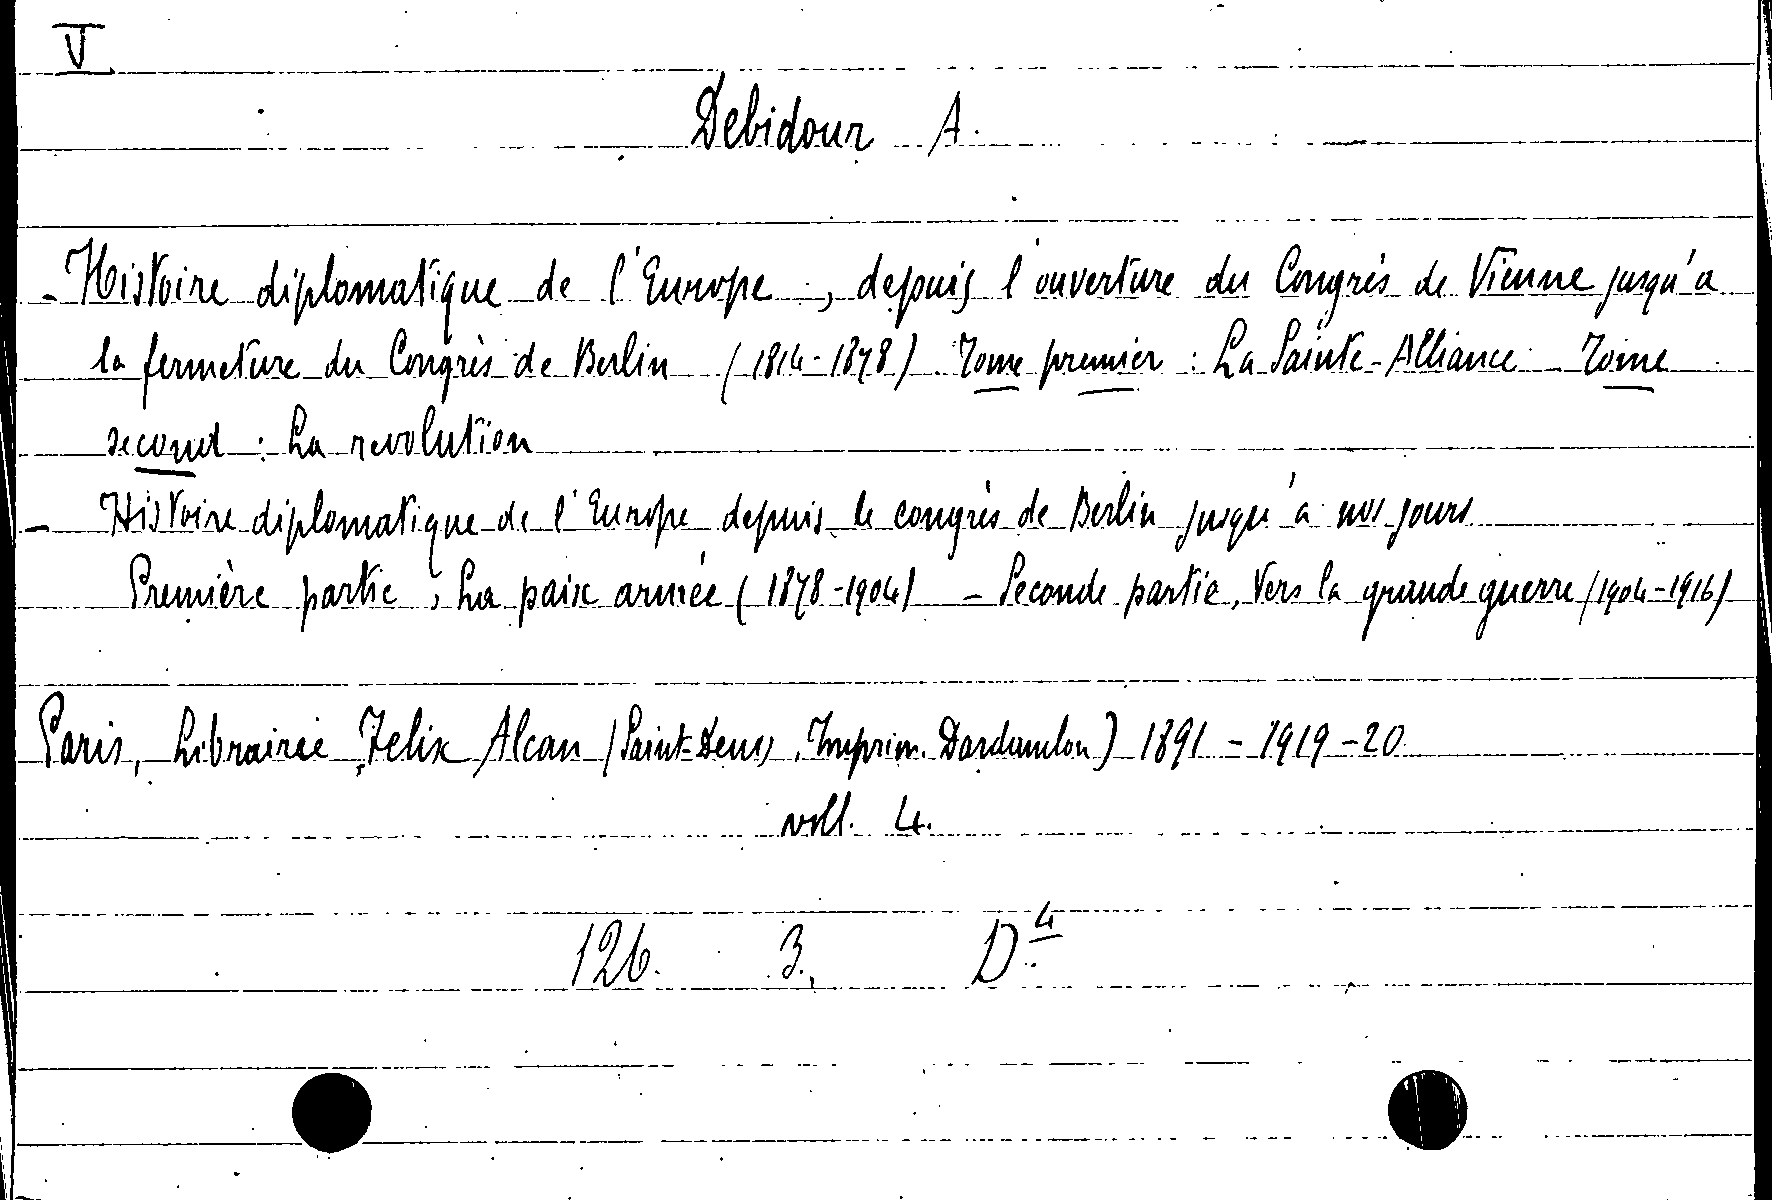 V
Debidour A.
- Histoire diplomatique de l'Europe, depuis l'ouverture du Congrès de Vienne jusqu'a
la fermeture du Congrès de Berlin (1814-1878) Tome premier : La Sainte-Alliance Tome
second : La revolution
- Histoire diplomatique de l'Europe depuis le congrès de Berlin jusqu'à nos jours
Première partie, La paix armée (1878-1904) - Seconde partie, Vers la grande guerre (1904-1916)
Paris, Librairie Felix Alcan (Saint-Denis, Imprim. Dardaillon) 1891 - 1919-20
voll. 4.
126. 3. D4